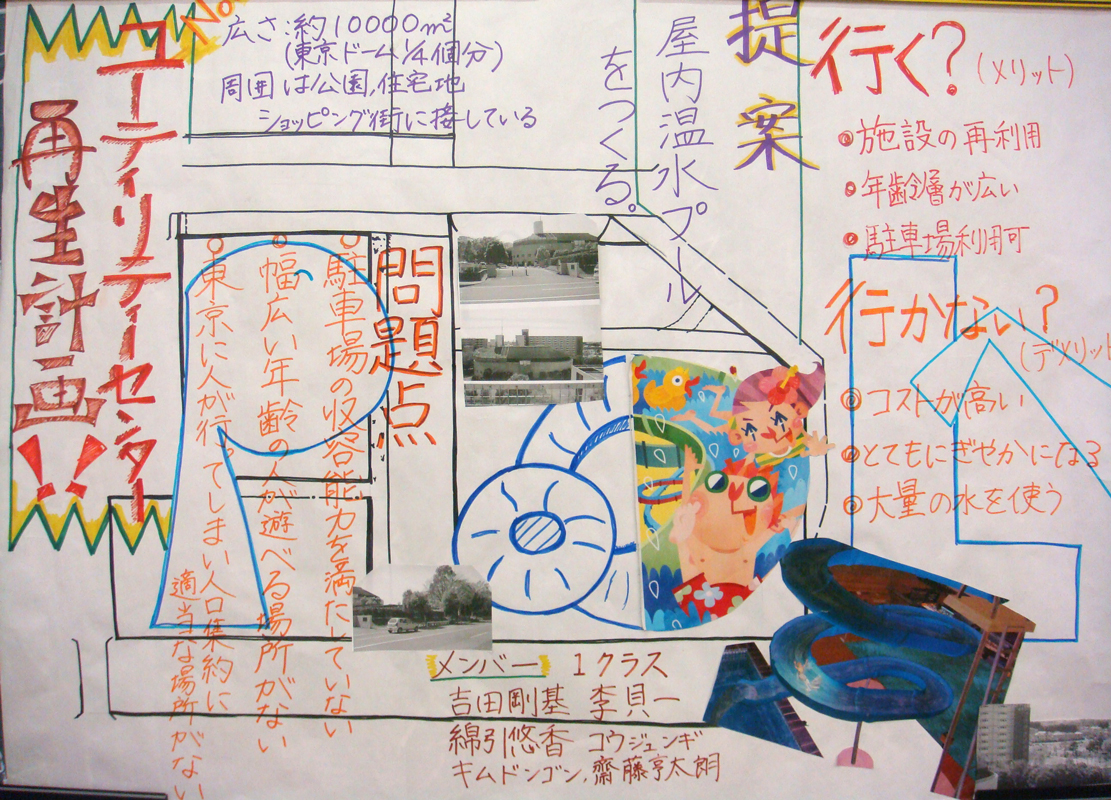 ユーティリティーセンター
再生計画!!
No.
広さ:約10000㎡
(東京ドーム1/4個分)
周囲は公園,住宅地
ショッピング街に接している
提案
屋内温水プール
をつくる。
問題点
◎駐車場の収容能力を満たしていない
◎幅広い年齢の人が遊べる場所がない
◎東京に人が行ってしまい人口集約に
適当な場所がない
行く?(メリット)
◎施設の再利用
◎年齢層が広い
◎駐車場利用可
行かない?
(デメリット
◎コストが高い
◎とてもにぎやかになる
◎大量の水を使う
メンバー 1クラス
吉田剛基 李貝一
綿引悠香 コウジュンギ
キムドンゴン,齋藤亨太朗